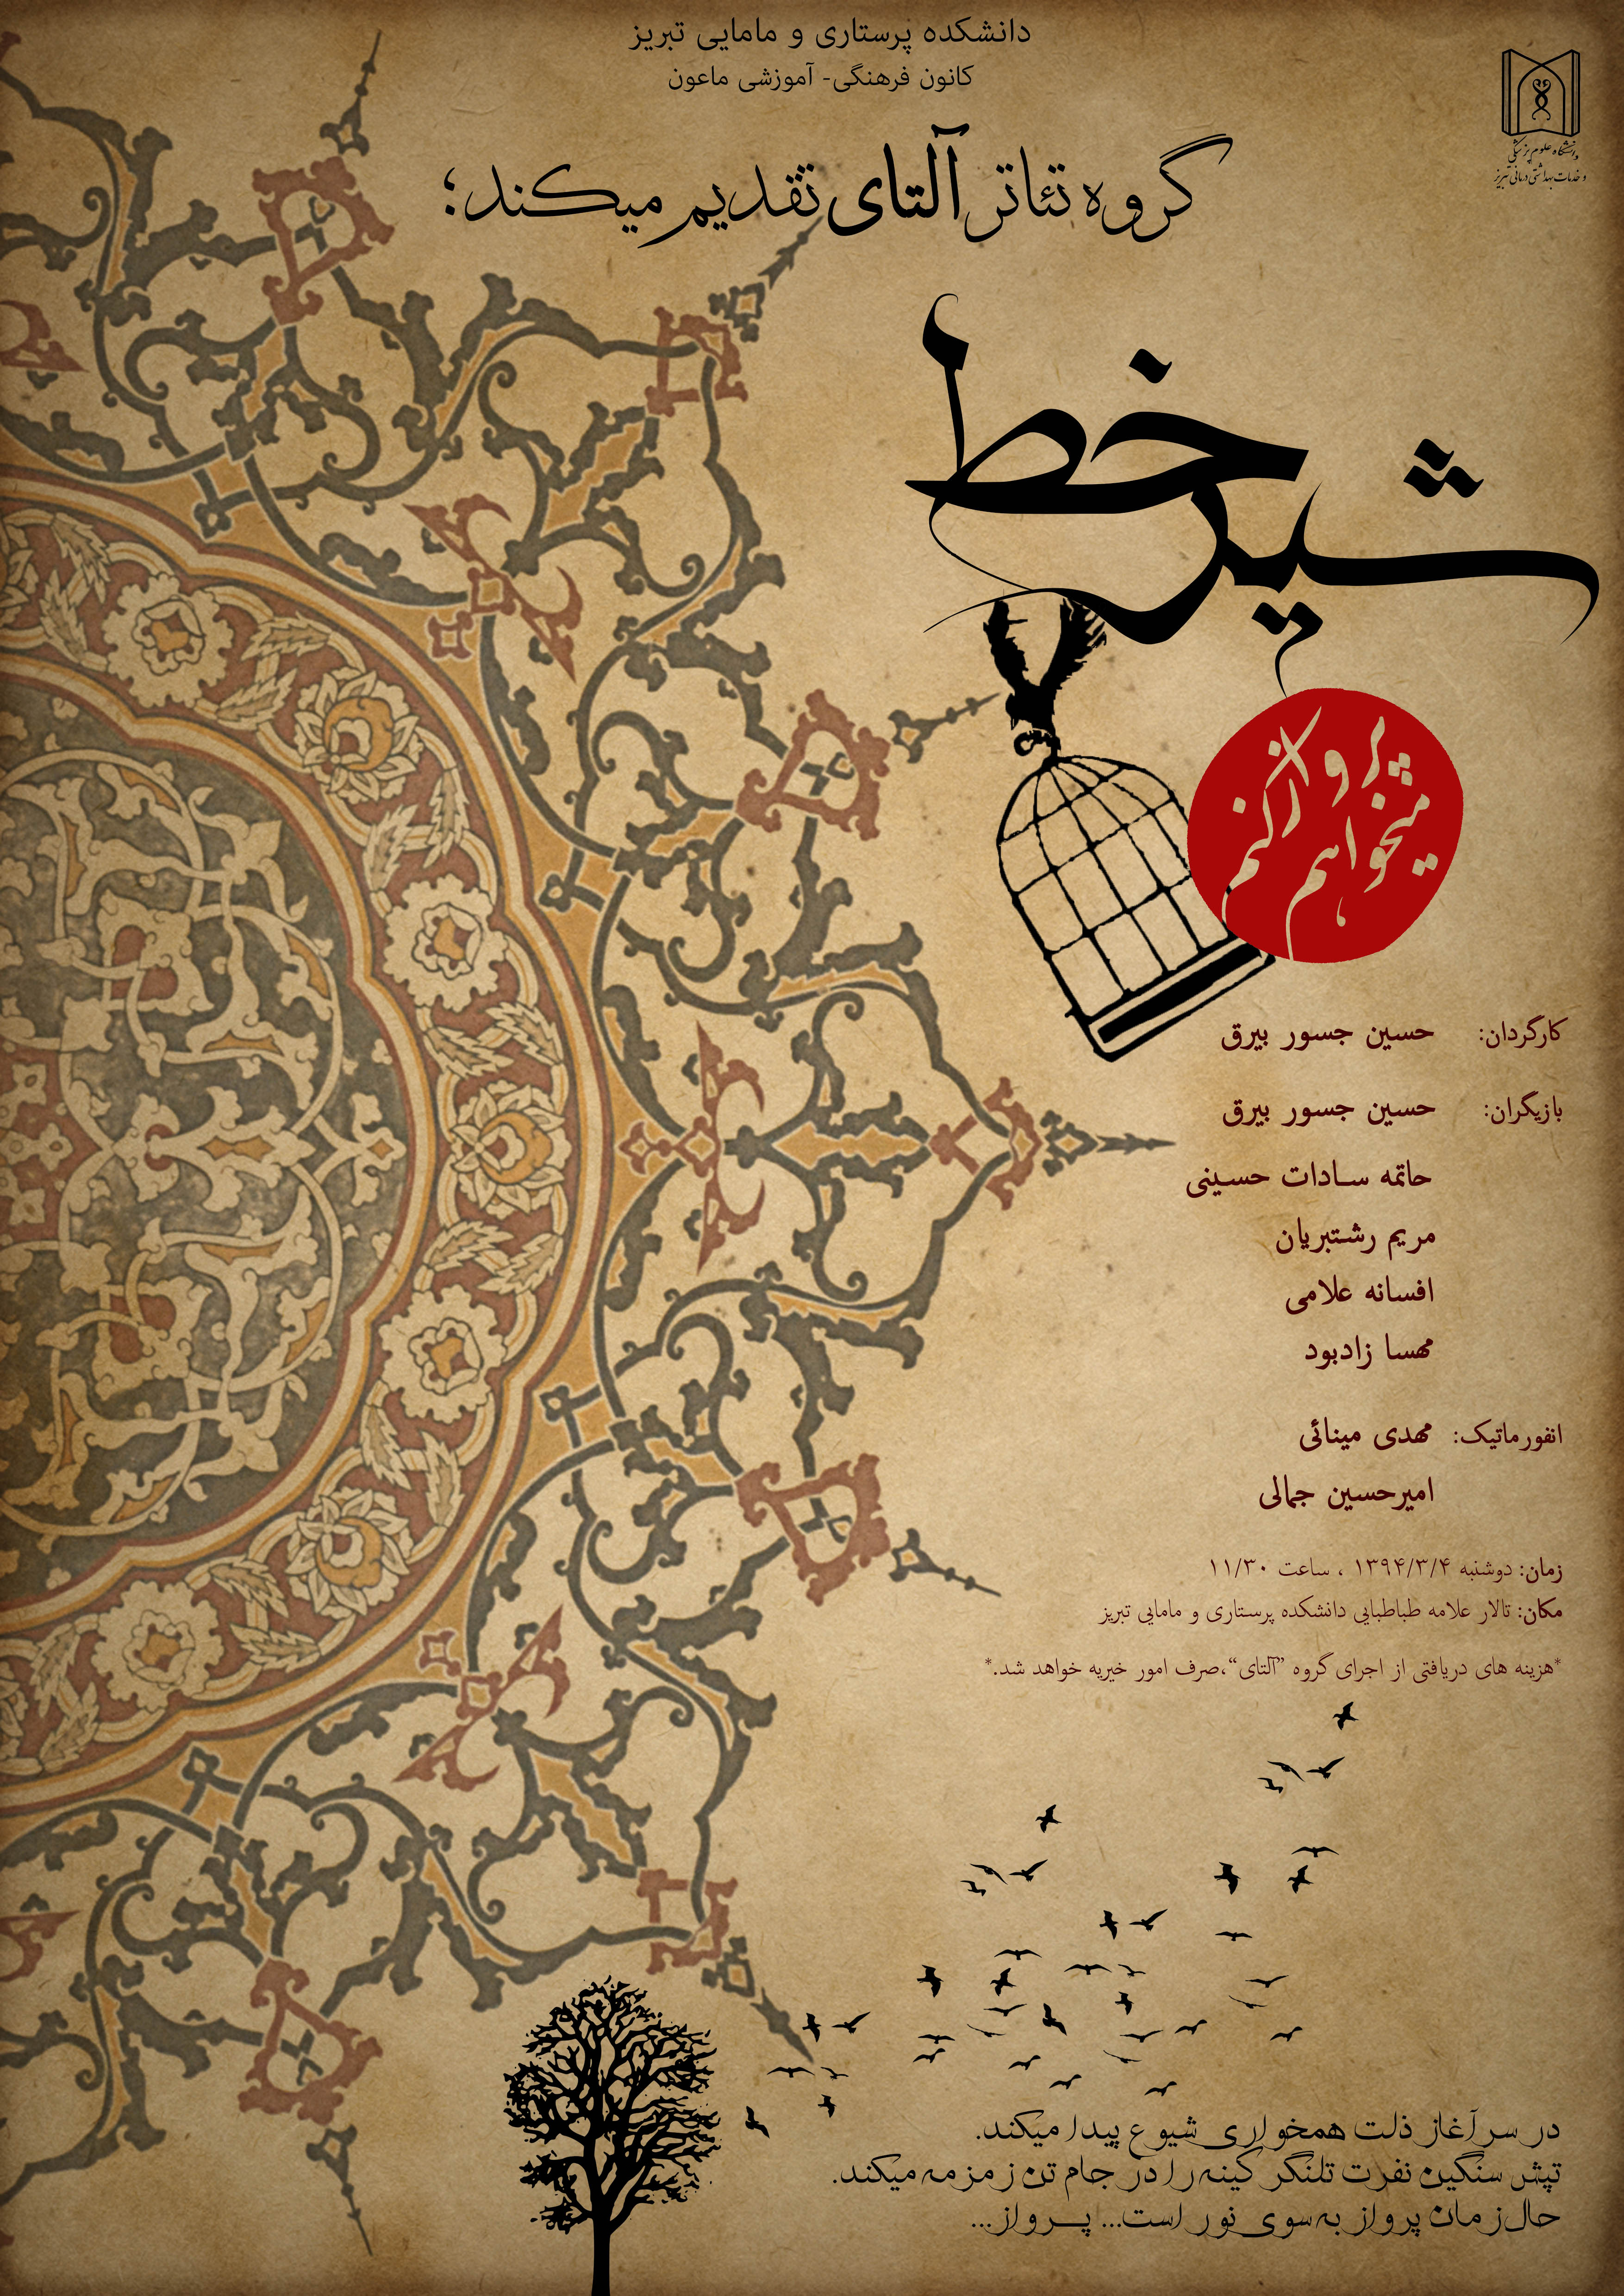 دانشکده پرستاری و مامایی تبریز
کانون فرهنگی- آموزشی ماعون
دانشگاه علوم پزشکی
و خدمات بهداشتی درمانی تبریز
گروه تئاتر آلتای تقدیم میکند؛
شیر خط
میخواهم
پرواز کنم
کارگردان: حسین جسور بیرق
بازیگران: حسین جسور بیرق
حاتمه سادات حسینی
مریم رشتبریان
افسانه علامی
مهسا زادبود
انفورماتیک: مهدی مینائی
امیرحسین جمالی
زمان: دوشنبه ۱۳۹۴/۳/۴ ، ساعت ۱۱/۳۰
مکان: تالار علامه طباطبایی دانشکده پرستاری و مامایی تبریز
*هزینه های دریافتی از اجرای گروه ”آلتای“،صرف امور خیریه خواهد شد.*
در سرآغاز ذلت همخواری شیوع پیدا میکند.
تپش سنگین نفرت تلنگر کینه را در جام تن زمزمه میکند.
حال زمان پرواز به سوی نور است... پـــرواز...